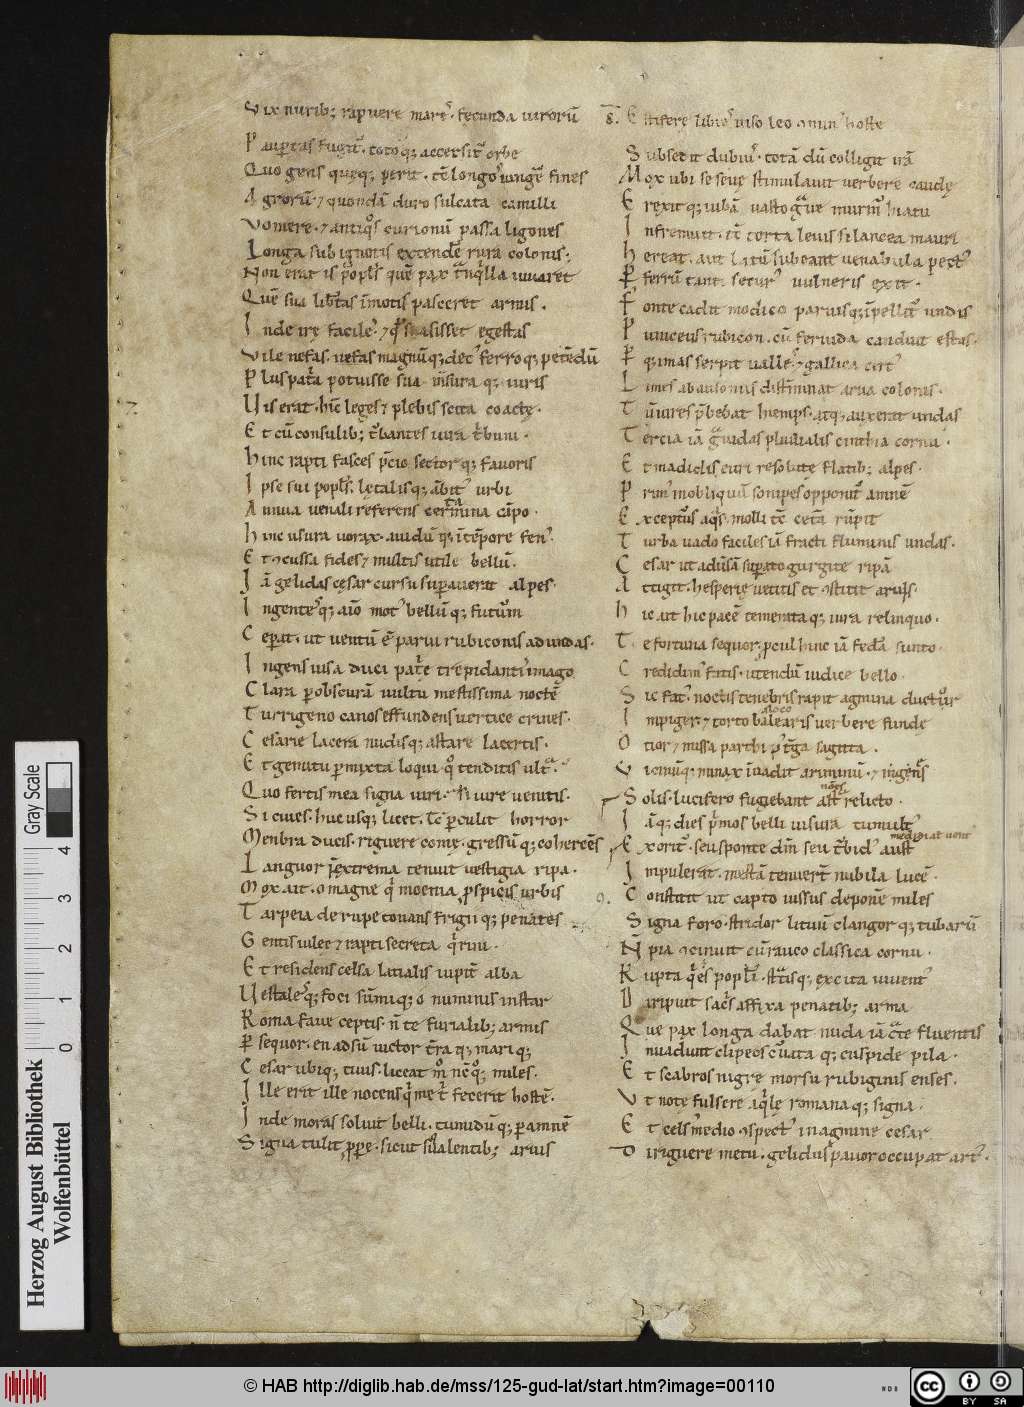 Vix nurib; rapuere mareſ. fecunda uirorū
Paupertas fugit᷑. totoq; accersit᷑ orbe
Quo gens queq; perit. tē longoſ iungē fines
Agrorū. ⁊ quondā duro sulcata camilli
Vomere. ⁊ antiqͦs curionū passa ligones
Longa sub ignotis extendē rura colonis;
Non erat is pp̄ls quē pax tͣnqͥlla iuuaret
Quē sua lib̄tas īmotis pasceret armis.
Inde irę facileſ. ⁊ qͦd suasisset egestas
Vile nefas. magnūq; decꝰ ferroq; petēdū
Plus patͥa potuisse sua. mensura q; iuris
Vis erat. hīc leges ⁊ plebis scita coactę.
Et cū consulib; tͬbantes iura tͥbuni.
Hinc rapti fasces p̄cio sector q; fauoris
Ipse sui popłs. letalisq; ābitꝰ urbi
Annua uenali referens certamina cāpo.
Hinc usura uorax. auidū q; ī tēpore fenꝰ.
Et ꝯcussa fides ⁊ multis utile bellū.
Iā gelidas cęsar cursu supauerat alpes.
Ingenteſq; aīo motꝰ bellūq; futurum
Ceperat. ut uentū ē parui rubiconis ad undas.
Ingens uisa duci patͥe trepidantiſ imago
Clara p obscurā uultu mestissima noctē
Turrigero canos effundens uertice crines.
Cesarie lacera nudisq; astare lacertis.
Et gemitu pmixta loqui. qͦ tenditis ultͣ.
Quo fertis mea signa uiri. si iure uenitis.
Si ciues. huc usq; licet. tc̄ pculit horror
Menbra ducis. riguere comę. gressū q; cohercēs
Languor ī extrema tenuit uestigia ripa.
Mox ait. o magne qͥ moenia pspicis urbis
Tarpeia de rupe tonans frigii q; penates
Gentis iulee ⁊ rapti secreta qͥrini.
Et residens celsa latialis iupit̄ alba
Vestaleſq; foci sūmiq; o numinis instar
Roma faue ceptis. n̄ te furialib; armis
Psequor. en adsū uictor tr̄a q; mari q;
Cesar ubiq; tuus. liceat m̊ nc̄ q; miles.
Ille erit ille nocens qͥ me tͥ fecerit hostē.
Inde moras soluit belli. tumidū q; p amnē
Signa tulit ppe. sicut sqͣlentib; aruis
8. Estifere libieſ uiso leo ꝯminꝰ hoste
Subsedit dubiꝰ. totā dū colligit irā
Mox ubi se sęuę stimulauit uerbere caudę
Erexitq; iubā uasto gͣue murmꝰ hiatu
Infremuit. tc̄ torta leuis si lancea mauri
Hereat. aut latū subeant uenabula pectꝰ
P ferrū tanti securꝰ uulneris exit.
Fonte cadit modico paruisq; īpellit᷑ undis
Puniceus rubicon. cū feruida canduit estas.
Pq; imas serpit ualleſ. ⁊ gallica certꝰ
Limes ab ausoniis distͥminat arua colonis.
Tc̄ uires p̄bebat hiemps. atq; auxerat undas
Tercia iā gͣuido pluuialis cinthia cornu.
Et madidis euri resolute flatib; alpes.
Primꝰ in obliquū sonipes opponit᷑ amnē
Exceptꝰs aqͣs. molli tc̄ cetͣa rūpit
Turba uado faciles iā fracti fluminis undas.
Cesar ut aduersā supato gurgite ripā
Attigit. hesperie uetitis et ꝯstitit aruis.
Hic ait hic pacē temerataq; iura relinquo.
Te fortuna sequor; pcul hinc iā fedͣa sunto.
Credidimꝰ fatis. utendū iudice bello.
Sic fatꝰ. noctis tenebris rapit agmina ductor
Impiger. ⁊ torto balearis uerbere fundę
Ocior ⁊ missa parthi p̄ tͬga sagitta.
Vicinūq; minax inuadit ariminū. ⁊ ingens
Solis. lucifero fugiebant astͣ relicto.
Iāq; dies pͥmos belli uisura tumultꝰ
Exoritꝰ. seu sponte deum seu tͬbidꝰ austꝰ
Impulerat. mestā tenuerūt nubila lucē.
9. Constitit ut capto iussus deponē miles
Signa foro. stridor lituū clangor q; tubarū
Npia ꝯcinuit cū rauco classica cornu.
Rupta qͥes popłi. stͣtisq; excita iuuentꝰ
Diripuit sacͥs affixa penatib; arma
Que pax longa dabat nuda iā cͣte fluentis
Inuadunt clipeos cuͬuata q; cuspide pila.
Et scabros nigre morsu rubiginis enses.
Vt note fulsere aqͥlę romana q; signa.
Et celsꝰ medio ꝯspectꝰ in agmine cesar
Diriguere metu. gelidus pauor occupat artꝰ.
Herzog August Bibliothek
Wolfenbüttel
Gray Scale
0 1 2 3 4
© HAB http://diglib.hab.de/mss/125-gud-lat/start.htm?image=00110
cc BY SA